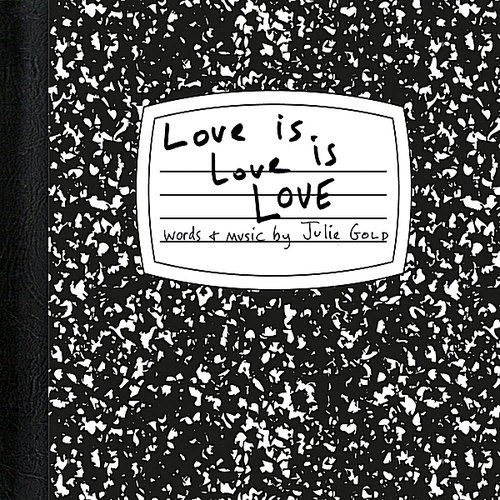 Love is.
Love is
LOVE
words & music by Julie Gold